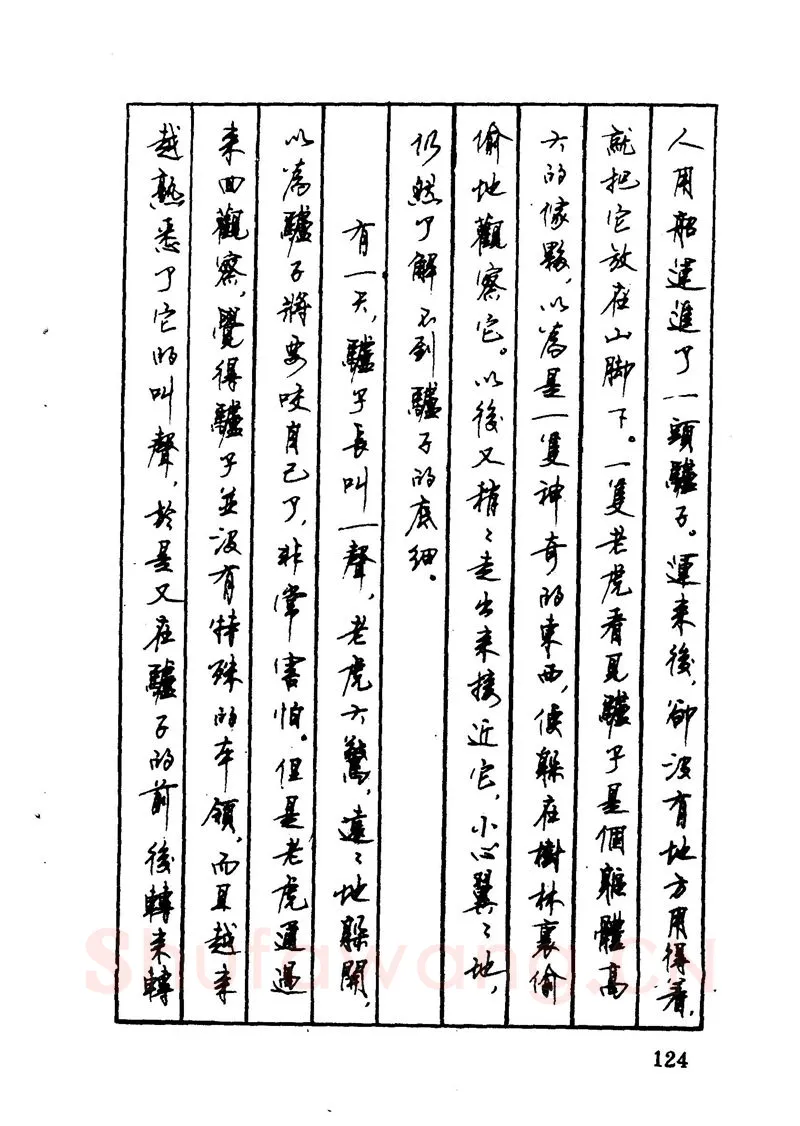 人用船運進了一頭驢子。運来後，卻没有地方用得着，
就把它放在山脚下。一隻老虎看見驢子是個軀體高
大的傢夥，以為是一隻神奇的東西，便躲在樹林裏偷
偷地觀察它。以後又稍〻走出来接近它，小心翼〻地，
仍然了解不到驢子的底細。
有一天，驢子長叫一聲，老虎大驚，遠〻地躲開，
以為驢子將要咬自己了，非常害怕。但是老虎通過
来回觀察，覺得驢子並没有特殊的本領，而且越来
越熟悉了它的叫聲，於是又在驢子的前後轉来轉
Shufawang.CN
124